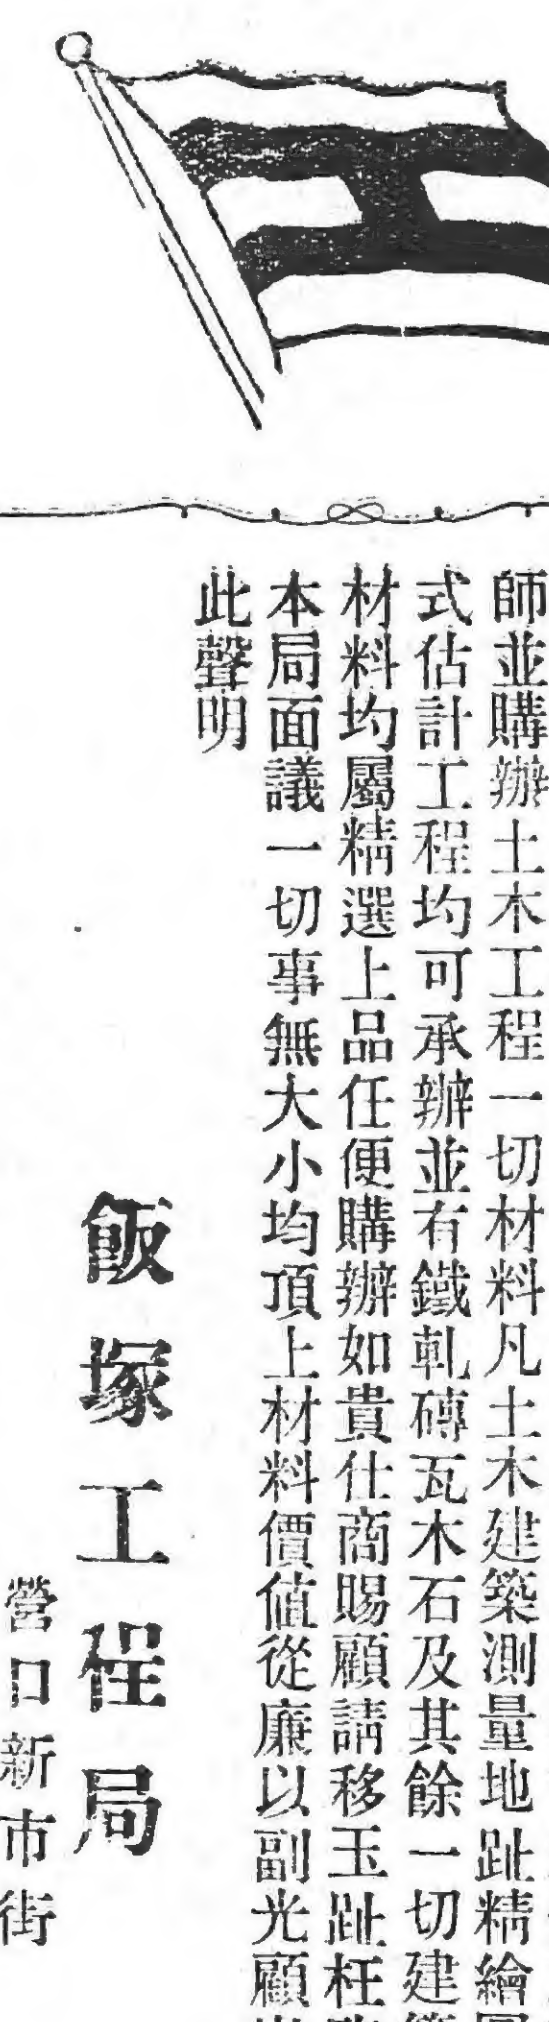 師並購辦土木工程一切材料凡土木建築測量地趾精繪圖
式估計工程均可承辦並有鐵軋磚瓦木石及其餘一切建築
材料均屬精選上品任便購辦如貴仕商賜顧請移玉趾枉
本局面議一切事無大小均頂上材料價值從廉以副光顧
此聲明
飯塚工程局
營口新市街